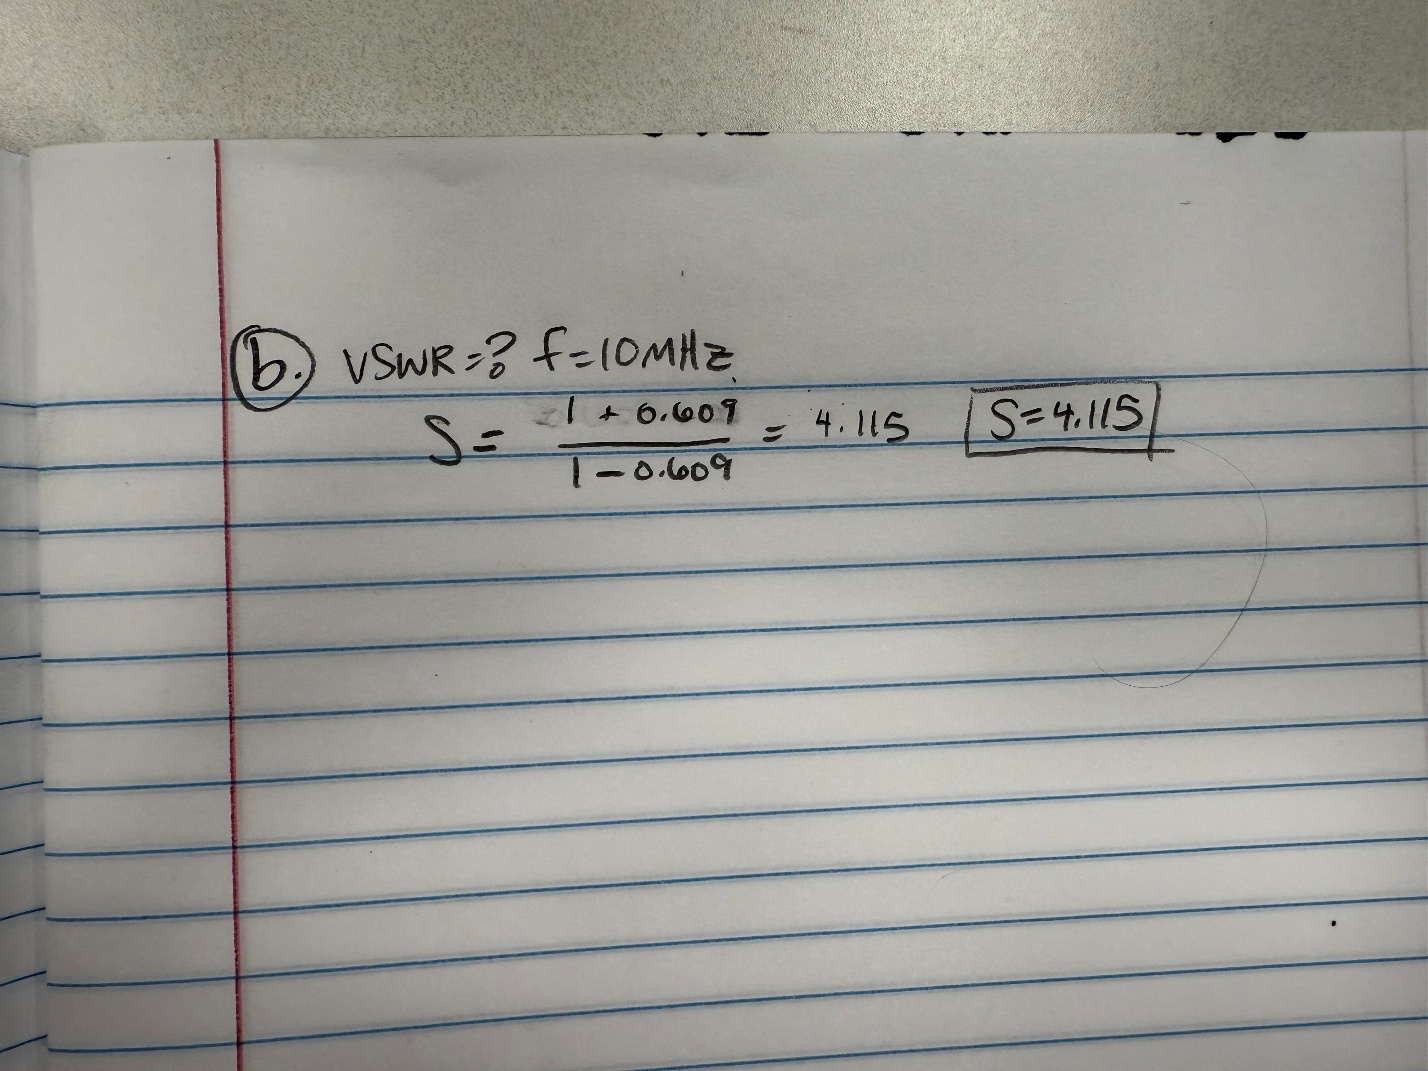 b. VSWR=? f=10MHz
S = (1 + 0.609)/(1 - 0.609) = 4.115 S=4.115